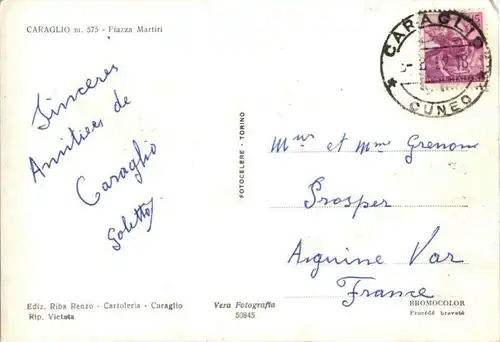 CARAGLIO m. 575 - Piazza Martiri
Sincères
Amitiés de
Caraglio
Goletto
Ediz. Riba Renzo - Cartoleria - Caraglio
Rip. Vietata
Vera Fotografia
50845
FOTOCELERE - TORINO
CARAGLIO
CUNEO
Mme et Mme Grenom
Prosper
Aiguine Var
France
BROMOCOLOR
Procédé breveté